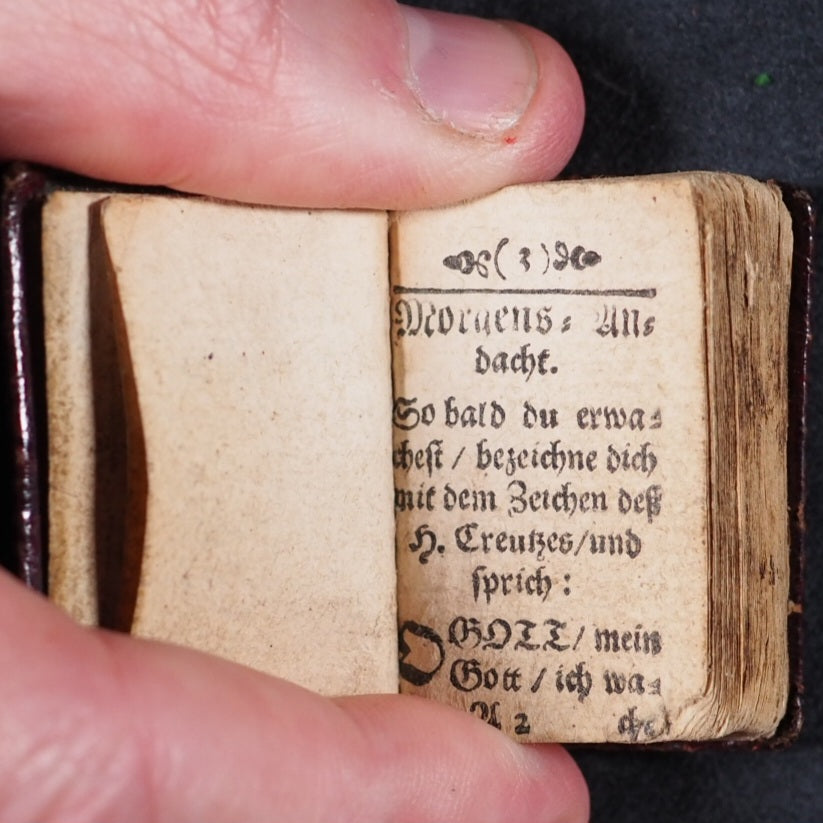 ( 3 )
Morgens- An-
dacht.
So bald du erwa-
chest / bezeichne dich
mit dem Zeichen deß
H. Creutzes/und
sprich :
O GOTT/ mein
Gott / ich wa-
A 2 che